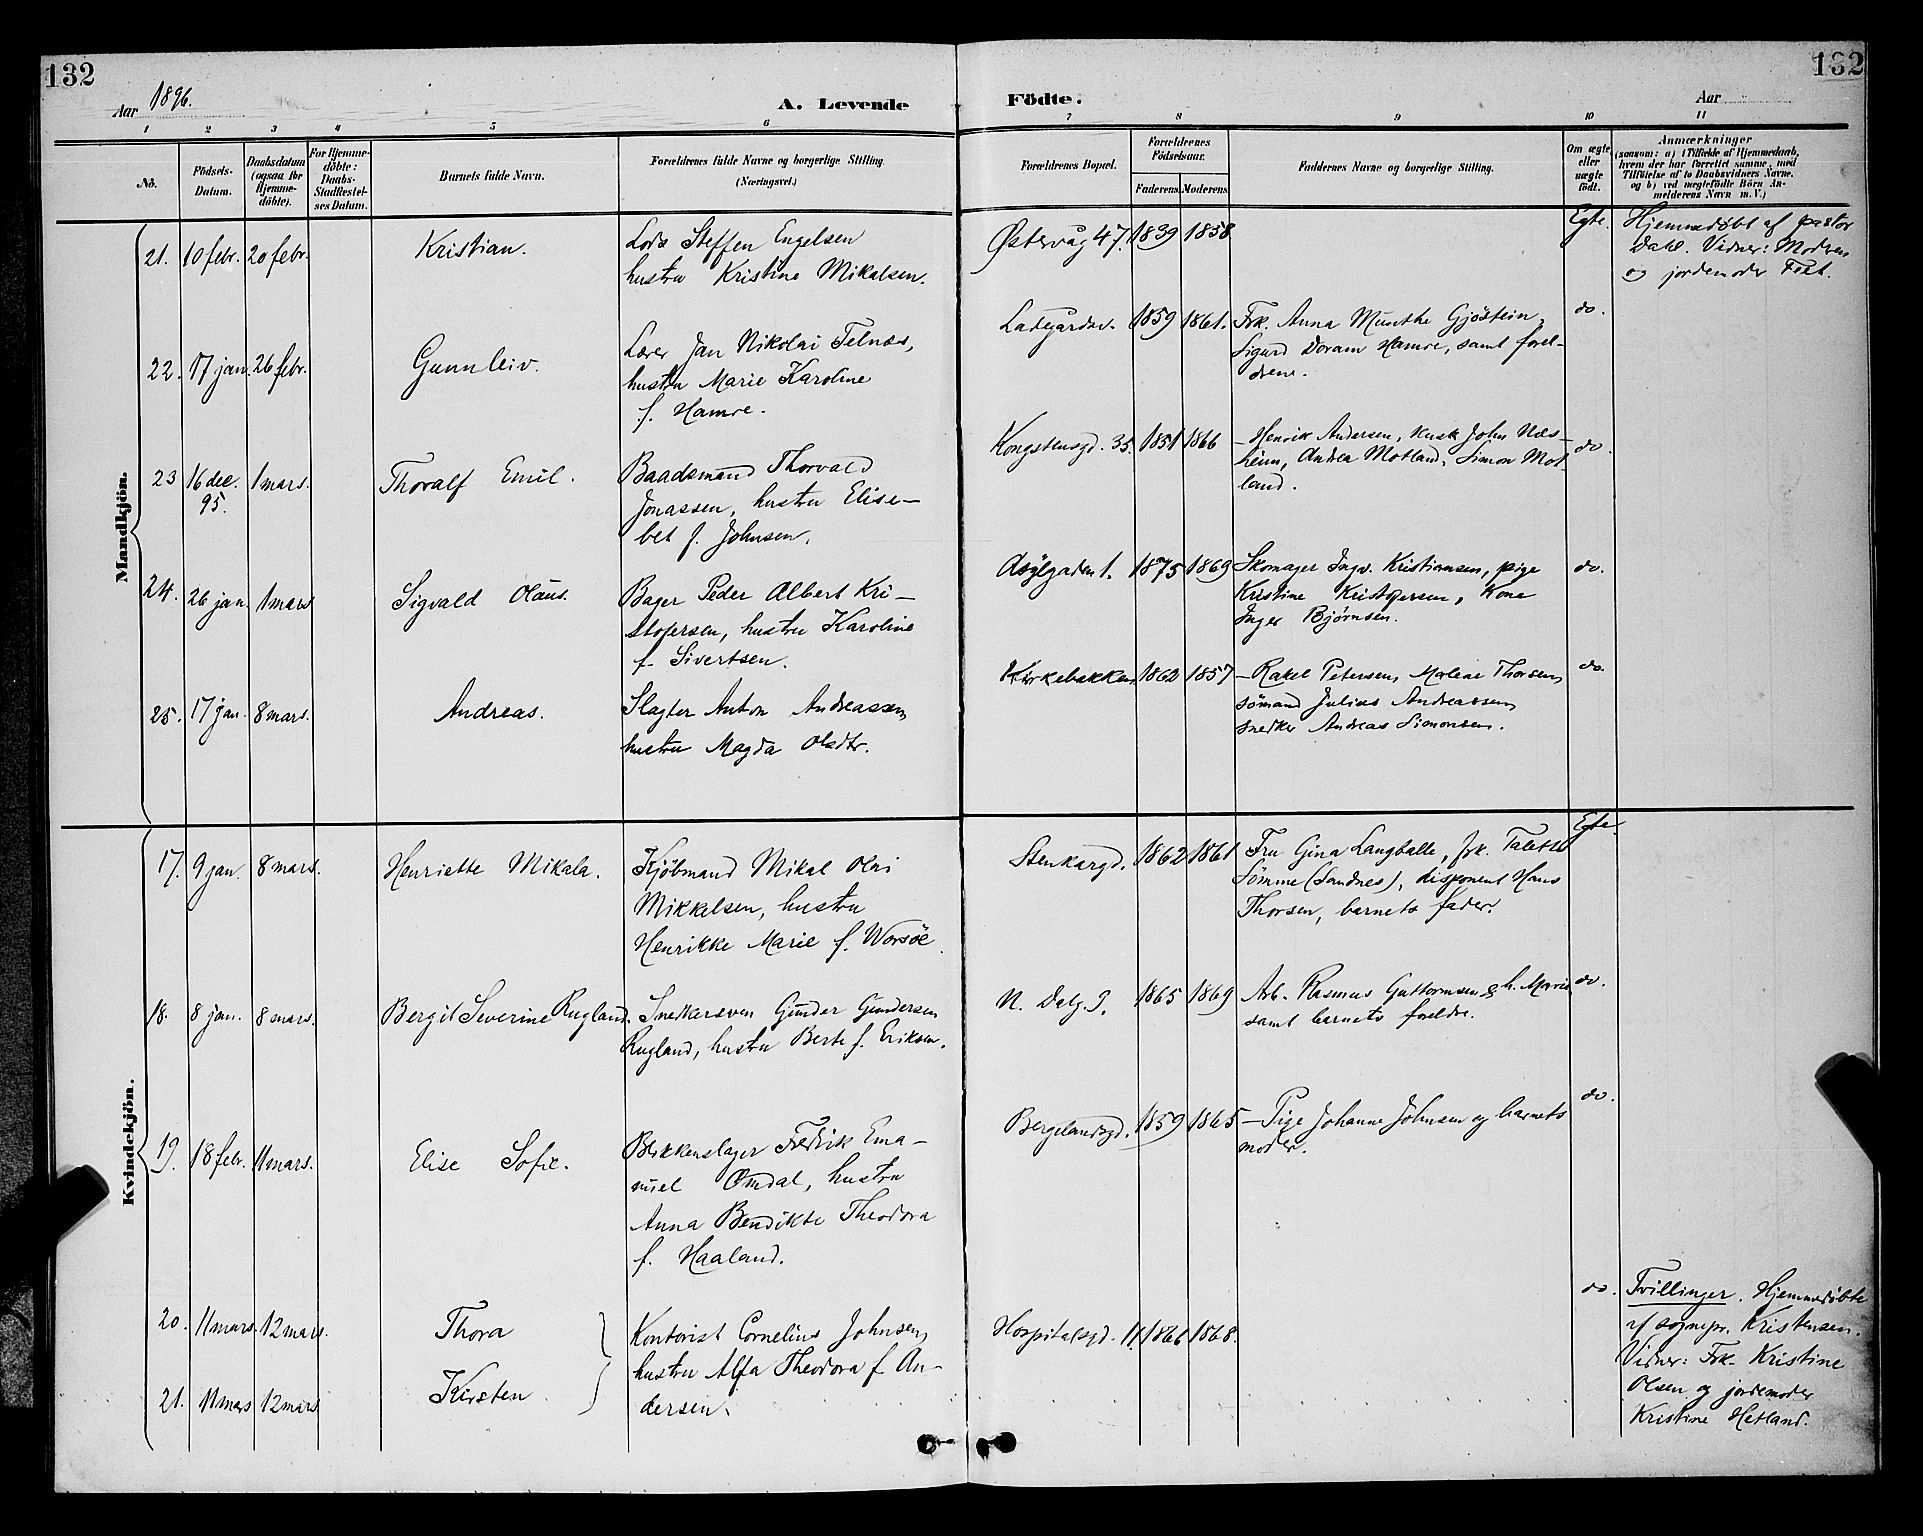 132
132
Aar 1896.
A. Levende
Födte.
Aar
1 2 3 4 5 6 7 8 9 10 11
No.
Födsels-Datum.
Daabsdatum (ogsaa for Hjemme-döbte).
For Hjemme-döbte: Daabs-Stadfæstel-ses Datum.
Barnets fulde Navn.
Forældrenes fulde Navne og borgerlige Stilling. (Næringsvei.)
Forældrenes Bopæl.
Forældrenes Födselsaar.
Faderens. Moderens.
Faddernes Navne og borgerlige Stilling.
Om ægte eller uægte födt.
Anmærkninger
(saasom: a) i Tilfælde af Hjemmedaab,
hvem der har forrettet samme, med
Tilföielse af to Daabsvidners Navne,
og b) ved uægtefödte Börn An-
melderens Navn m. V.)
Mandkjön.
21. 10 febr. 20 febr. Kristian.
Lods Steffen Engelsen
hustru Kristine Mikalsen.
Østervåg 47. 1839 1858
Egte.
Hjemmedøbt af pastor
Dahl. Vidner: Modren
og jordemoder Feat.
22. 17 jan. 26 febr. Gunnleiv.
Lærer Jan Nikolai Telnæs,
hustru Marie Karoline
f. Hamre.
Ladegårdsv. 1859 1861.
Frk. Anna Munthe Gjöstein,
Sigurd Doram Hamre, samt forel-
drene.
do.
23 16 dec. 95. 1 mars. Thoralf Emil.
Baadsmand Thorvald
Jonassen, hustru Elise-
bet f. Johnsen.
Kongstensgd. 35. 1851 1866
Henrik Andersen, Kusk John Næs-
heim, Andrea Motland, Simon Mot
land.
do.
24. 26 jan. 1 mars Sigvald Olaus.
Bager Peder Albert Kri-
stofersen, hustru Karoline
f. Sivertsen.
Asylgaden 1. 1875 1869
Skomager Ingv. Kristiansen, pige
Kristine Kristofersen, Kone
Inger Bjørnsen.
do.
25. 17 jan. 8 mars. Andreas.
Slagter Anton Andreassen,
hustru Magda Olsdtr.
Kirkebakken 1862 1857
Rakel Petersen, Malene Thorsen,
sømand Julius Andreassen,
snedker Andreas Simonsen.
do.
Kvindekjön.
17. 9 jan. 8 mars. Henriette Mikala.
Kjøbmand Mikal Olai
Mikkelsen, hustru
Henrikke Marie f. Worsöe.
Stenkargd. 1862 1861
Fru Gina Langballe, frk. Talette
Sömme (Sandnes), disponent Hans
Thorsen, barnets fader.
Egte.
18. 8 jan. 8 mars. Bergit Severine Rugland.
Snedkersven Gunder Gundersen
Rugland, hustru Berte f. Eriksen.
N. Dalg. 9. 1865 1869
Arb. Rasmus Guttormsen & h. Marie
samt barnets foreldre.
do.
19. 18 febr. 11 mars. Elise Sofie.
Blikkenslager Fredrik Ema-
nuel Omdal, hustru
Anna Bendikte Theodora
f. Haaland.
Bergelandsgd. 1859 1865
Pige Johanne Johnsen og barnets
moder.
do.
20. 11 mars. 12 mars. Thora
Kontorist Cornelius Johnsen,
hustru Alfa Theodora f. An-
dersen.
Hospitalsgd. 11 1866 1868.
do.
Tvillinger. Hjemmedøbte
af sognepr. Kristensen.
Vidner: Frk. Kristine
Olsen og jordemoder
Kristine Hetland.
21. 11 mars 12 mars Kirsten